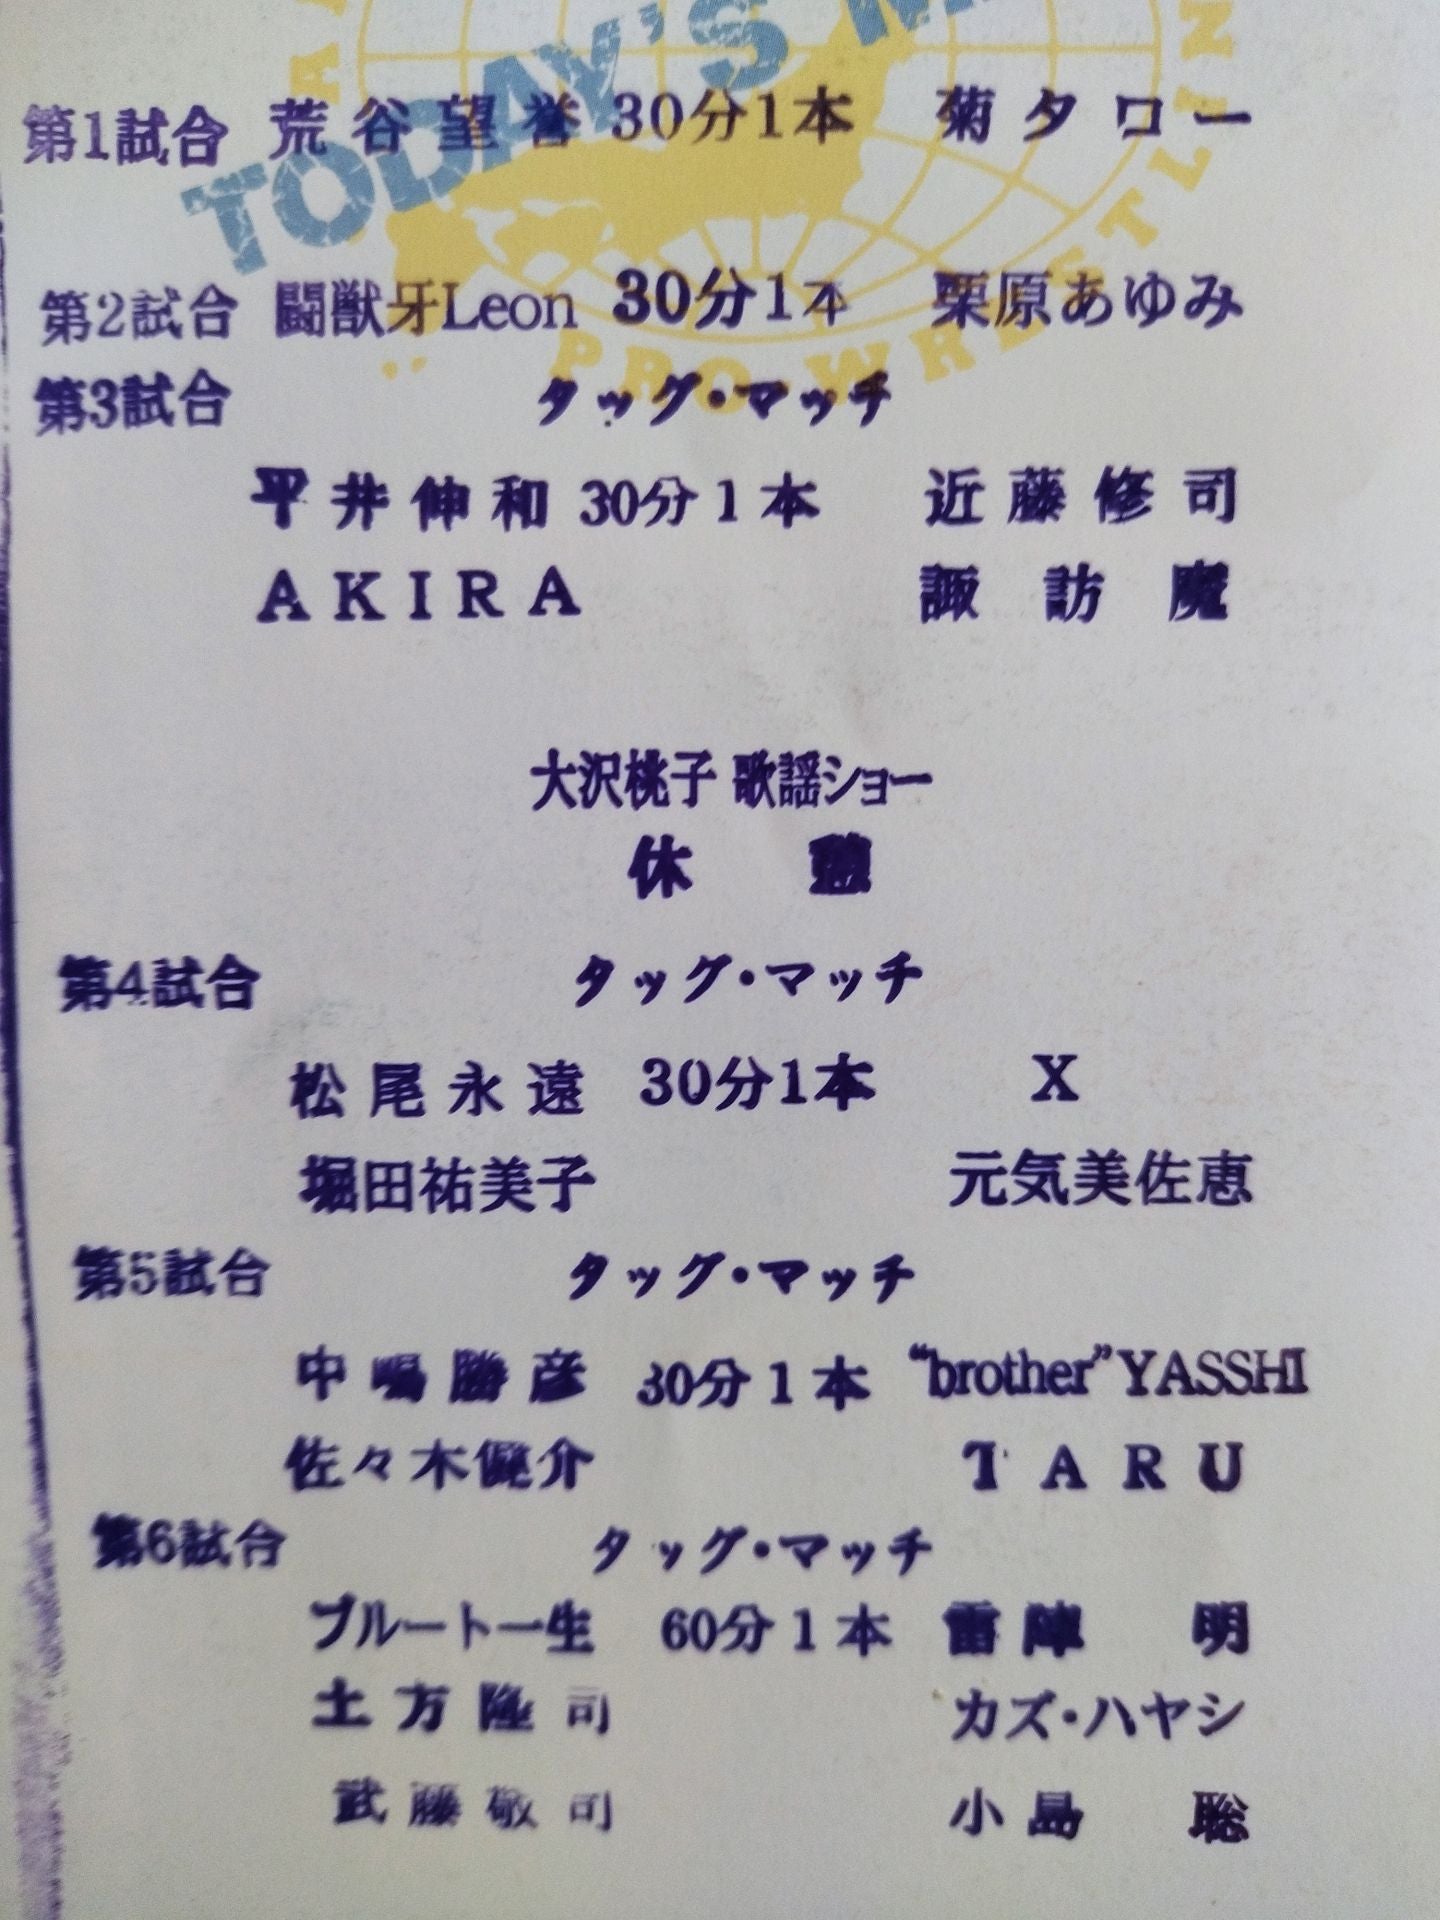 TODAY'S M
PRO-WRESTLIN
第1試合 荒谷望誉 30分1本 菊タロー
第2試合 闘獣牙Leon 30分1本 栗原あゆみ
第3試合 タッグ・マッチ
平井伸和 30分1本 近藤修司
AKIRA 諏訪魔
大沢桃子 歌謡ショー
休憩
第4試合 タッグ・マッチ
松尾永遠 30分1本 X
堀田祐美子 元気美佐恵
第5試合 タッグ・マッチ
中嶋勝彦 30分1本 “brother”YASSHI
佐々木健介 TARU
第6試合 タッグ・マッチ
ブルート一生 60分1本 雷陣明
土方隆司 カズ・ハヤシ
武藤敬司 小島聡